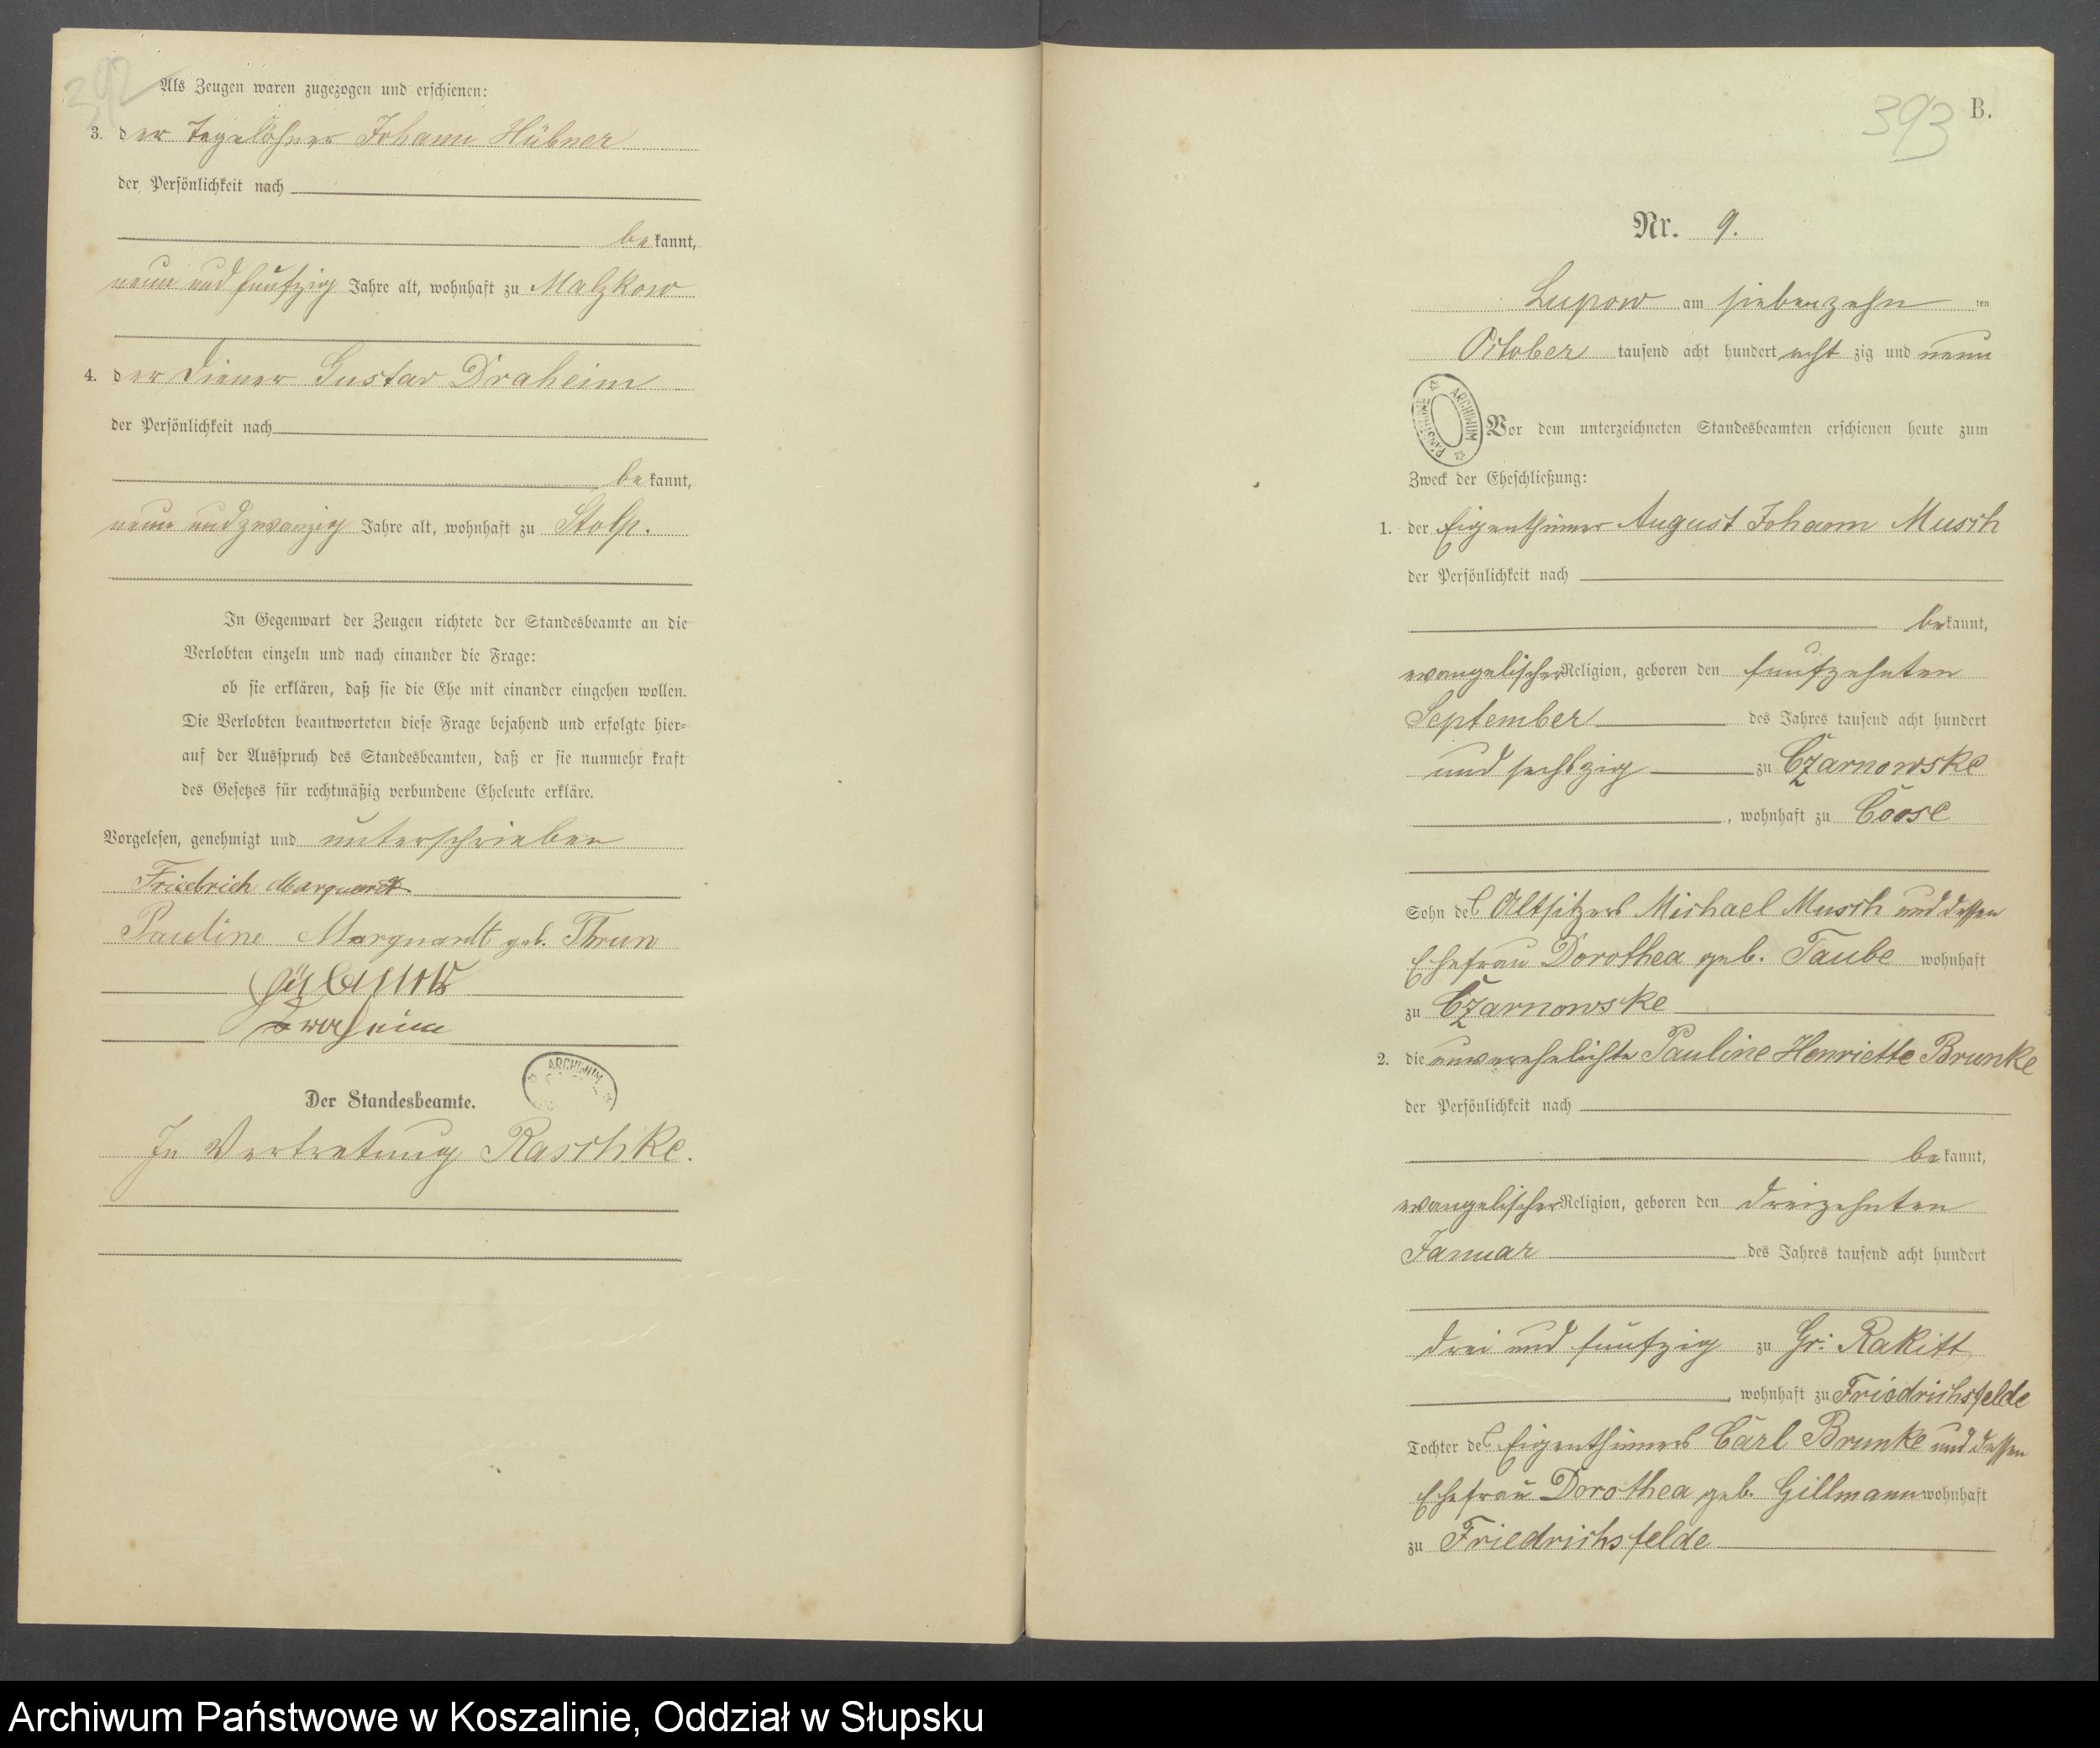 392
Als Zeugen waren zugezogen und erschienen:
3. der Tagelöhner Johann Hübner
der Persönlichkeit nach
bekannt,
neun und fünfzig Jahre alt, wohnhaft zu Malzkow
4. der Diener Gustav Draheim
der Persönlichkeit nach
bekannt,
neun und zwanzig Jahre alt, wohnhaft zu Stolp.
In Gegenwart der Zeugen richtete der Standesbeamte an die
Verlobten einzeln und nach einander die Frage:
ob sie erklären, daß sie die Ehe mit einander eingehen wollen.
Die Verlobten beantworteten diese Frage bejahend und erfolgte hier-
auf der Ausspruch des Standesbeamten, daß er sie nunmehr kraft
des Gesetzes für rechtmäßig verbundene Eheleute erkläre.
Vorgelesen, genehmigt und unterschrieben
Friedrich Marquardt
Pauline Marquardt geb. Thrun
ARCHIWUM
Der Standesbeamte.
In Vertretung Raschke.
393
B.
Nr. 9.
Lupow am siebenzehn ten
October tausend acht hundert acht zig und neun
ARCHIWUM PAŃSTWOWE
Vor dem unterzeichneten Standesbeamten erschienen heute zum
Zweck der Eheschließung:
1. der Eigenthümer August Johann Musch
der Persönlichkeit nach
bekannt,
evangelischer Religion, geboren den fünfzehnten
September des Jahres tausend acht hundert
und sechszig zu Czarnowske
, wohnhaft zu Coose
Sohn des Altsitzers Michael Musch und dessen
Ehefrau Dorothea geb. Taube wohnhaft
zu Czarnowske
2. die unverehelichte Pauline Henriette Brunke
der Persönlichkeit nach
bekannt,
evangelischer Religion, geboren den dreizehnten
Januar des Jahres tausend acht hundert
drei und fünfzig zu Gr: Rakitt
, wohnhaft zu Friedrichsfelde
Tochter des Eigenthümers Carl Brunke und dessen
Ehefrau Dorothea geb. Gillmann wohnhaft
zu Friedrichsfelde
Archiwum Państwowe w Koszalinie, Oddział w Słupsku